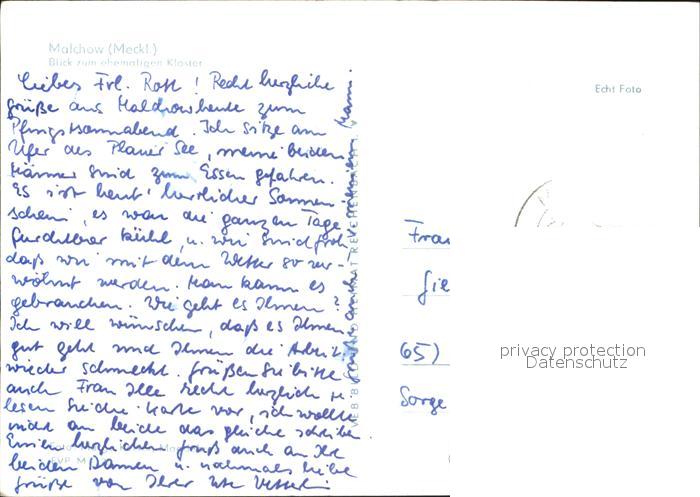 Malchow (Meckl.)
Blick zum ehemaligen Kloster
Echt Foto
Liebes Frl. Rott! Recht herzliche
Grüße aus Malchow heute zum
Pfingstsonnabend. Ich sitze am
Ufer des Plauer See, meine beiden
Männer sind zum Essen gefahren.
Es ist heut' herrlicher Sonnen-
schein, es war die ganzen Tage
furchtbar kühl, u. wir sind froh
daß wir mit dem Wetter so ver-
wöhnt werden. Man kann es
gebrauchen. Wie geht es Ihnen?
Ich will wünschen, daß es Ihnen
gut geht und Ihnen die Arbeit
wieder schmeckt. Grüßen Sie bitte
auch Frau Ille recht herzlich u.
lesen Sie die Karte vor, ich wollte
nicht an beide das gleiche schreiben
Einen herzlichen Gruß auch an Ihre
beiden Damen u. nochmals liebe
Grüße von Ihrer
Grüße auch v. meinem Mann.
VEB BILD UND HEIMAT REICHENBACH I. V.
Frau
65)
Sorge
privacy protection
Datenschutz